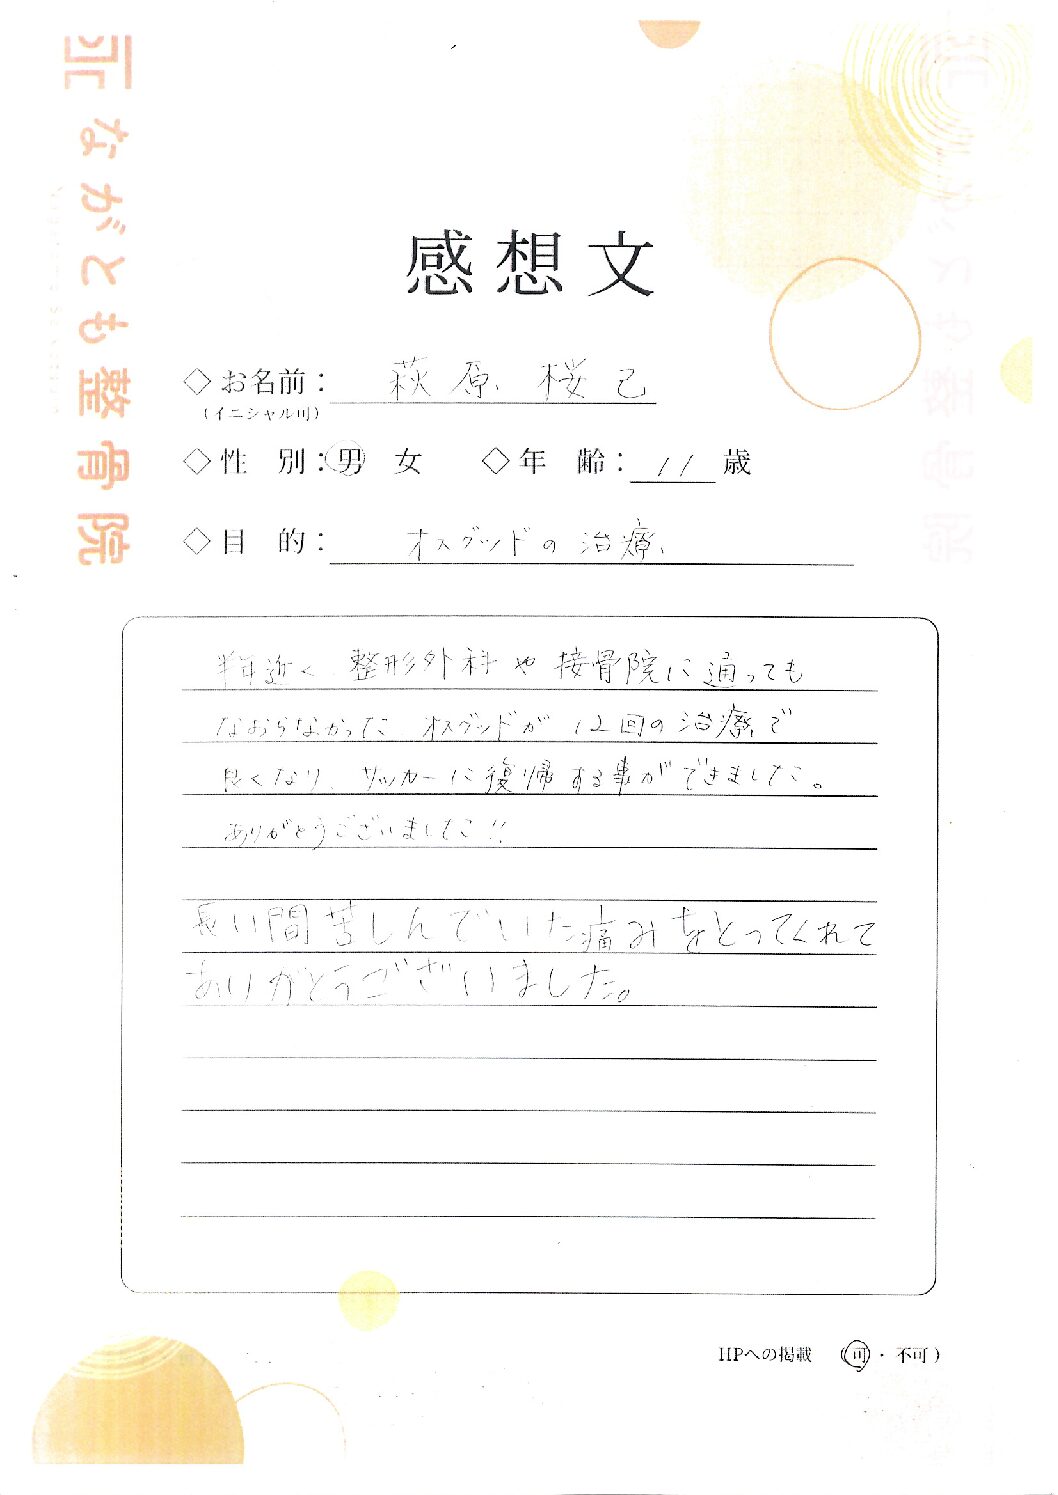 ながとも整骨院
感想文
◇お名前： 萩原 桜己
（イニシャル可）
◇性 別：男 女 ◇年 齢： 11 歳
◇目 的： オスグッドの治療
半年近く 整形外科や接骨院に通っても
なおらなかった オスグッドが 12回の治療で
良くなり、サッカーに復帰する事ができました。
ありがとうございました!!
長い間苦しんでいた痛みをとってくれて
ありがとうございました。
HPへの掲載 （可・不可）